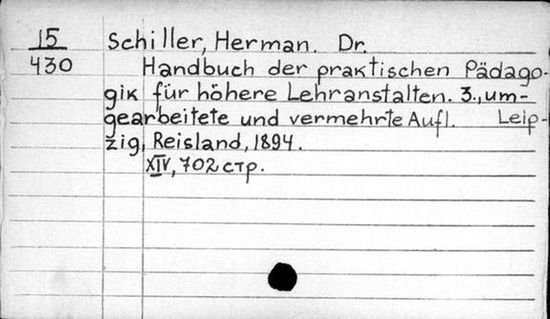 15 Schiller, Herman. Dr.
430 Handbuch der praktischen Pädago-
gik für höhere Lehranstalten. 3., um-
gearbeitete und vermehrte Aufl. Leip-
zig, Reisland, 1894.
XIV, 702 стр.